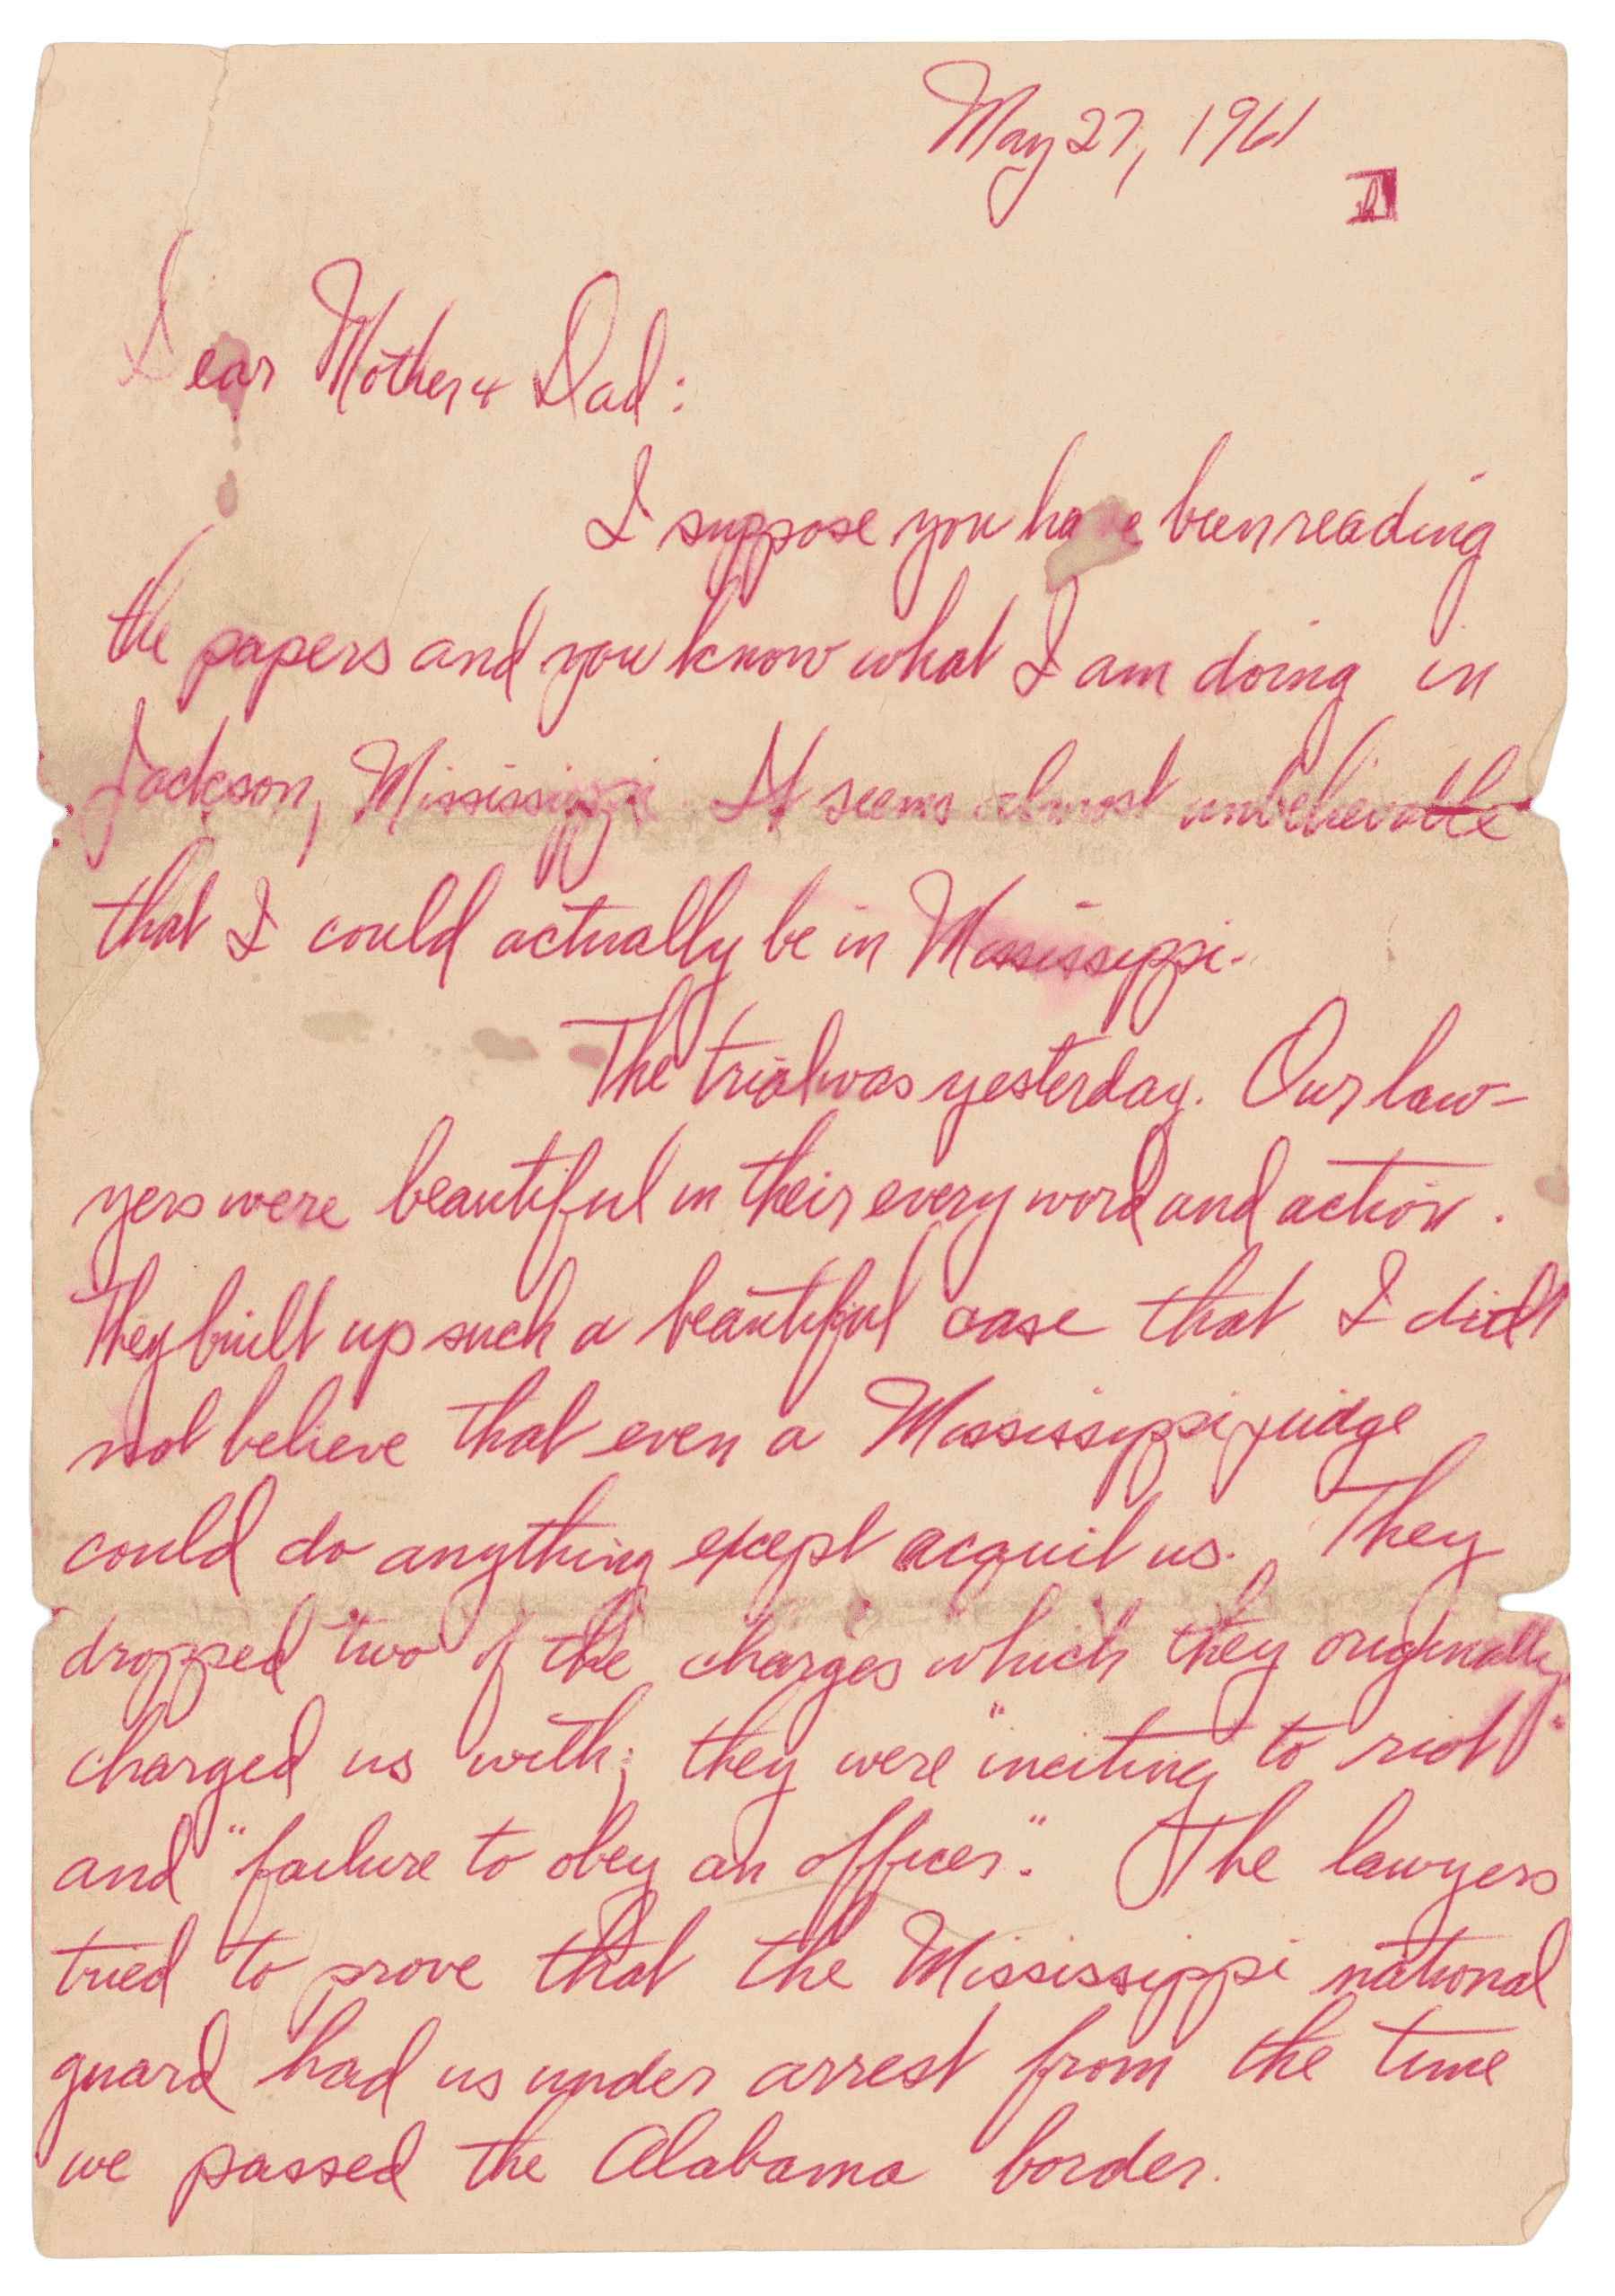 May 27, 1961
Dear Mother & Dad:
I suppose you have been reading
the papers and you know what I am doing in
Jackson, Mississippi. It seems almost unbelievable
that I could actually be in Mississippi.
The trial was yesterday. Our law-
yers were beautiful in their every word and action.
They built up such a beautiful case that I did
not believe that even a Mississippi judge
could do anything except acquit us. They
dropped two of the charges which they originally
charged us with; they were "inciting to riot"
and "failure to obey an officer". The lawyers
tried to prove that the Mississippi national
guard had us under arrest from the time
we passed the Alabama border.